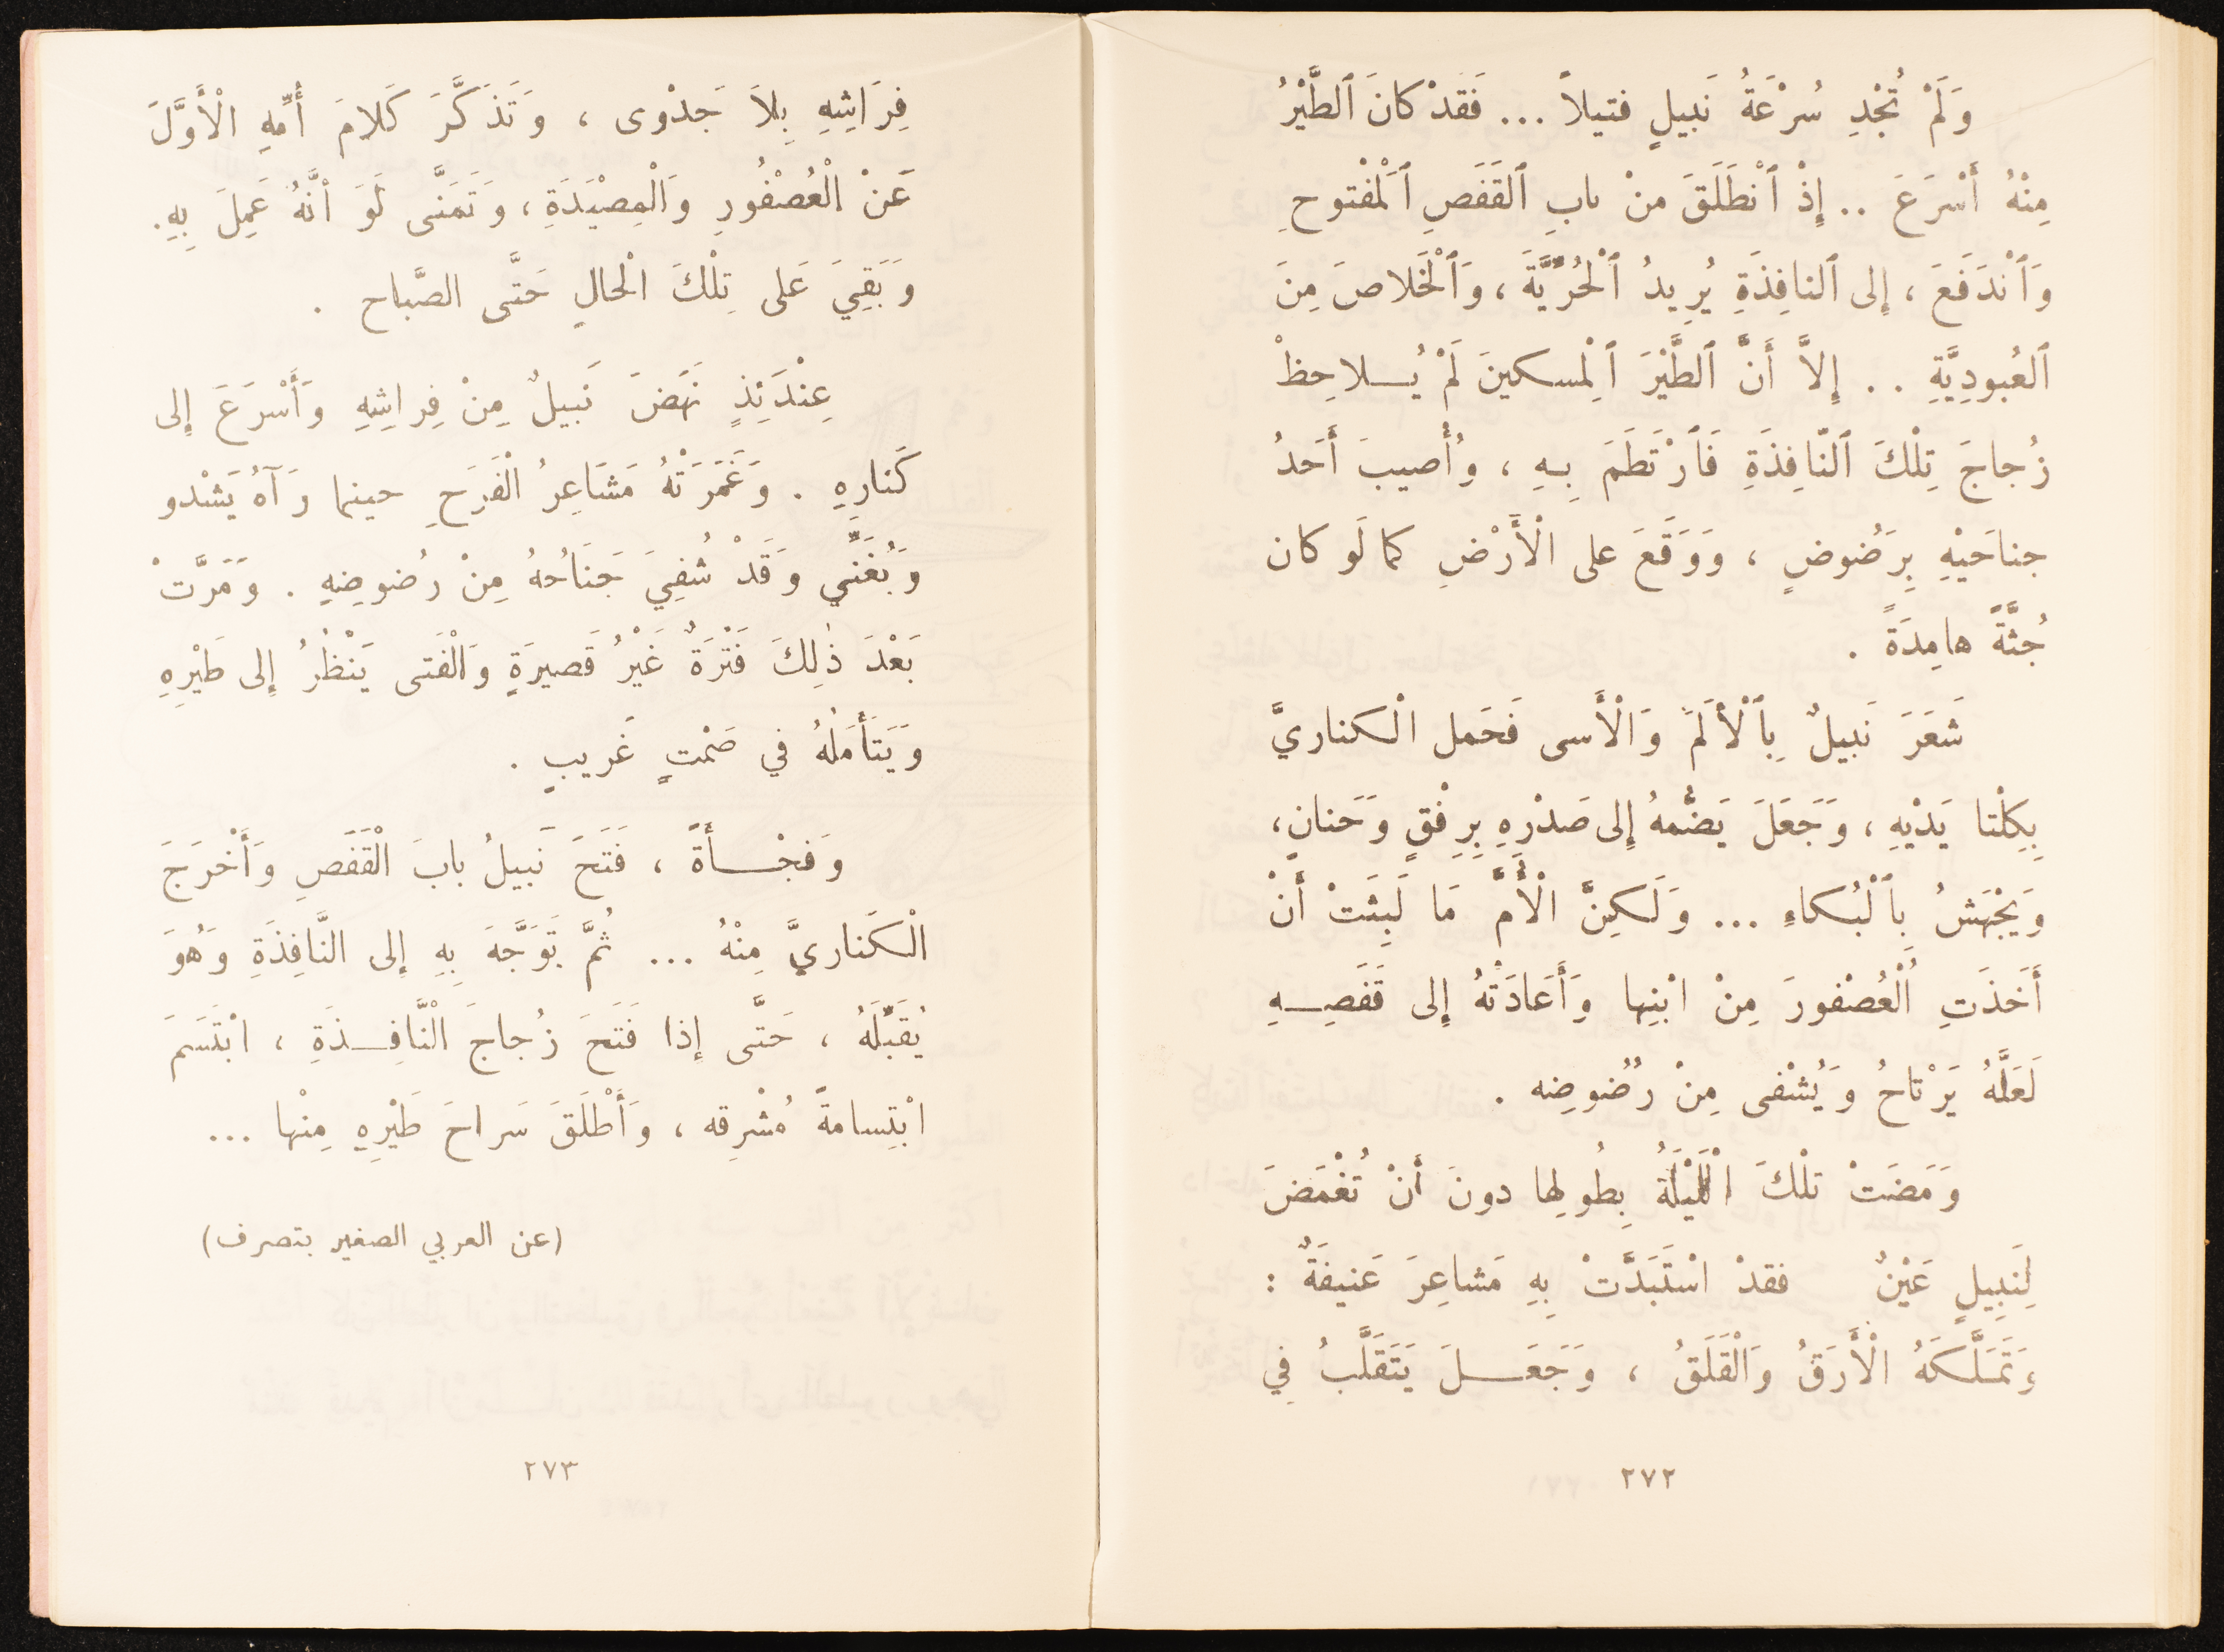 وَلَمْ تُجْدِ سُرْعَةُ نَبيلٍ فتيلاً ... فَقَدْ كانَ ٱلطَّيْرُ
مِنْهُ أَسْرَعَ .. إِذْ ٱنْطَلَقَ منْ بابِ ٱلقَفَصِ ٱلَمْفْتوحِ
وَٱنْدَفَعَ ، إِلى ٱلنافِذَةِ يُرِيدُ ٱلْحُرِّيَّةَ ، وَٱلْخَلاصَ مِنَ
ٱلعُبودِيَّةِ . . إِلاَّ أَنَّ ٱلطَّيْرَ ٱلِمْسكينَ لَمْ يُـــلاحِظْ
زُجاجَ تِلْكَ ٱلنّافِذَةِ فَٱرْتَطَمَ بِـهِ ، وُأُصيبَ أَحَدُ
جناحَيْهِ بِرَضُوضٍ ، وَوَقَعَ على الْأَرْضِ كما لَو كان
جُثَّةً هامِدَةً .
شَعَرَ نَبيلٌ بِٱلْأَلَمً وَالْأَسى فَحَمل الْكناريَّ
بِكِلْتا يَدْيْهِ ، وَجَعَلَ يَضُّمهُ إِلى صَدْرِهِ بِرِفْقٍ وَحَنانٍ،
وَيَجْهَشُ بِٱلْبُكاءِ ... وَلَكِنَّ الْأُمَّ مَا لَبِثَتْ أَنْ
أَخَذَتِ الْعُصْفورَ مِنْ ابْنِها وَأَعَادَتْهُ إِلى قَفَصِــهِ
لَعَلَّهُ يَرْتاحُ وَيُشْفى مِنْ رُضُوضِه .
وَمَضَتْ تلْكَ الْلَيْلَةُ بِطُولِها دونَ أَنْ تُغْمَضَ
لِنَبِيلٍ عَيْنٌ فقدْ اسْتَبَدَّتْ بِهِ مَشاعِرَ عَنيفَةٌ :
وَتَمَلَّكَهُ الْأَرَقُ وَالْقَلَقُ ، وَجَعَـــلَ يَتَقَلَّبُ فِي
٢٧٢
فِرَاشِهِ بِلاَ جَدْوى ، وَتَذَكَّرَ كَلامَ أُمِّهِ الْأَوَّلَ
عَنْ الْعُصْفُورِ وَالْمِصْيَدَةِ ، وَتَمَنَّى لَوَ أنَّهُ عَمِلَ بِهِ.
وَبَقِيَ عَلى تِلْكَ الْحالِ حَتَّى الصَّباح .
عِنْدَئِذٍ نَهَضَ نَبيلٌ مِنْ فِراشِهِ وَأَسْرَعَ إِلى
كَنَارِهِ . وَغَمَرَتْهُ مَشَاعِرُ الْفَرَحِ حينما رَآهُ يَشْدو
وَيُغَنِّي وَقَدْ شُفِيَ جَنَاحُهُ مِنْ رُضوضِهِ . وَمَرَّتْ
بَعْدَ ذٰلِكَ فَتْرَةٌ غَيْرُ قَصيرَةٍ وَالْفَتى يَنْظُرُ إِلى طَيْرِهِ
وَيَتَأَمَلُهُ في صَمْتٍ غَريبٍ .
وَفجْــأَةً ، فَتَحَ نَبيلُ بابَ الْقَفَصِ وَأَخْرَجَ
الْكَناريَّ مِنْهُ ... ثُمَّ تَوَجَّهَ بِهِ إِلى النَّافِذَةِ وَهُوَ
يُقَبِّلَهُ ، حَتَّى إِذا فَتَحَ زُجاجَ الْنَّافِــذَةِ ، ابْتَسَمَ
ابْتِسامةً مُشْرِقه ، وَأَطْلَقَ سَراحَ طَيْرِهِ مِنْها ...
(عن العربي الصغير بتصرف)
٢٧٣